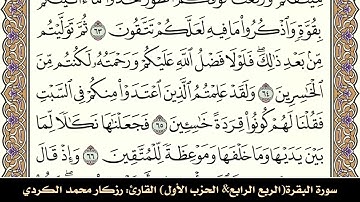 بِقُوَّةٍ وَاذْكُرُوا مَا فِيهِ لَعَلَّكُمْ تَتَّقُونَ ٦٣ ثُمَّ تَوَلَّيْتُم
مِّنۢ بَعْدِ ذَٰلِكَ فَلَوْلَا فَضْلُ اللَّهِ عَلَيْكُمْ وَرَحْمَتُهُ لَكُنتُم مِّنَ
الْخَاسِرِينَ ٦٤ وَلَقَدْ عَلِمْتُمُ الَّذِينَ اعْتَدَوْا مِنكُمْ فِي السَّبْتِ
فَقُلْنَا لَهُمْ كُونُوا قِرَدَةً خَاسِئِينَ ٦٥ فَجَعَلْنَاهَا نَكَالًا لِّمَا
بَيْنَ يَدَيْهَا وَمَا خَلْفَهَا وَمَوْعِظَةً لِّلْمُتَّقِينَ ٦٦ وَإِذْ قَالَ
سورة البقرة(الربع الرابع& الحزب الأول) القارئ: رزكار محمد الكردي